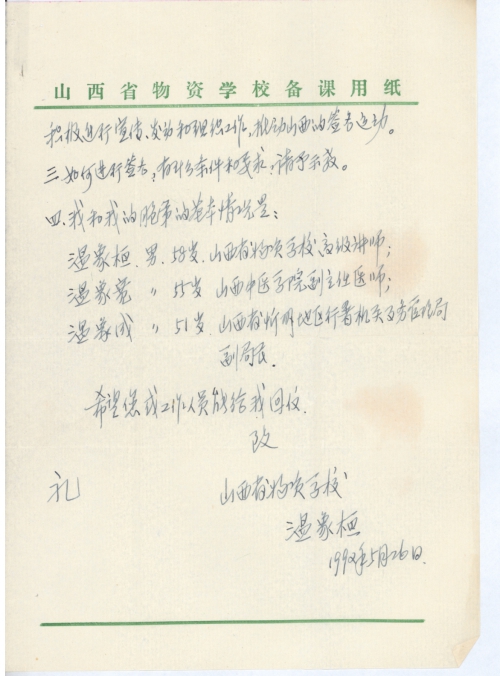 山西省物资学校备课用纸
积极进行宣传、发动和组织工作，推动山西的签名运动。
三.如何进行签名，有什么条件和要求，请予示教。
四.我和我的胞弟的基本情况是：
温象桓.男.58岁.山西省物资学校高级讲师；
温象宽 〃 55岁.山西中医学院副主任医师；
温象成 〃 51岁.山西省忻州地区行署机关事务管理局
副局长.
希望您或工作人员能给我回信.
致
礼 山西省物资学校
温象桓
1992年5月26日.